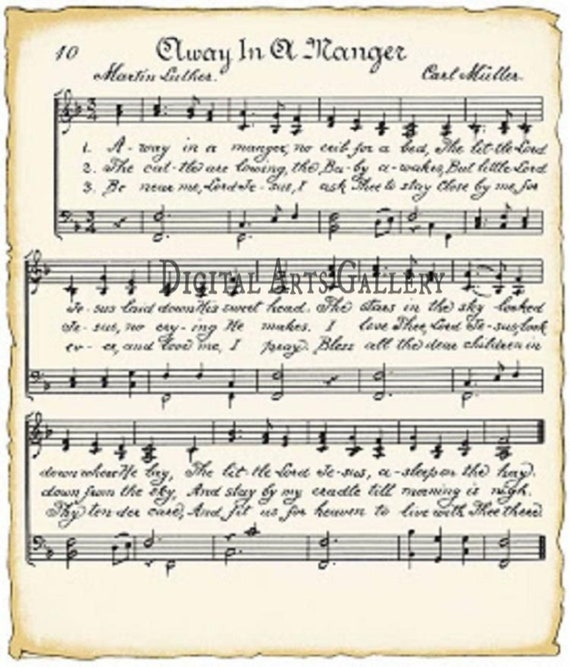 10 Away In A Manger
Martin Luther. Carl Müller.
3 4
1. A-way in a manger, no crib for a bed, The lit-tle Lord
2. The cat-tle are lowing, the Ba-by a-wakes, But little Lord
3. Be near me, Lord Je-sus, I ask Thee to stay close by me, for
3 4
DIGITAL ARTS GALLERY
Je-sus laid down His sweet head. The stars in the sky looked
Je-sus, no cry-ing He makes. I love Thee, Lord Je-sus, look
ev-er, and love me, I pray. Bless all the dear children in
down where He lay, The lit-tle Lord Je-sus, a-sleep on the hay.
down from the sky, And stay by my cradle till morning is nigh.
Thy ten-der care, And fit us for heaven to live with Thee there.